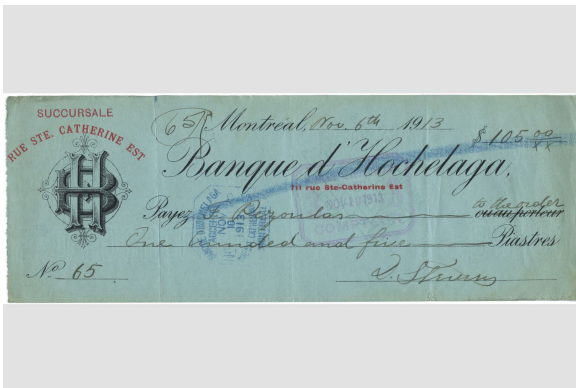 SUCCURSALE
RUE STE. CATHERINE EST
HB
65 Montréal, Nov. 6th 1913
$ 105 00/XX
Banque d'Hochelaga,
711 rue Ste-Catherine Est
NOV 10 1913
Payez to the order
ou au porteur
One hundred and five Piastres
No 65